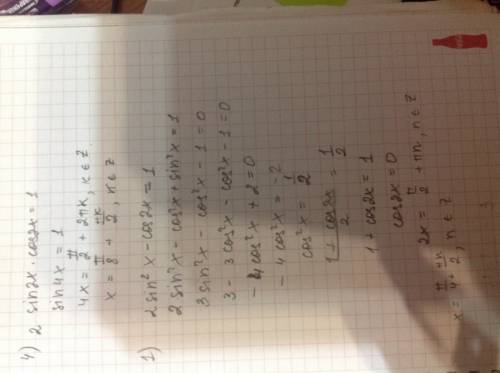 4) 2 sin2x · cos2x = 1
sin4x = 1
4x = π/2 + 2πk, k ∈ Z
x = π/8 + πk/2, k ∈ Z
1) 2sin²x − cos2x = 1
2sin²x − cos²x + sin²x = 1
3sin²x − cos²x − 1 = 0
3 − 3cos²x − cos²x − 1 = 0
− 4cos²x + 2 = 0
− 4cos²x = −2
cos²x = 1/2
1 + cos2x / 2 = 1/2
1 + cos2x = 1
cos2x = 0
2x = π/2 + πn, n ∈ Z
x = π/4 + πn/2, n ∈ Z